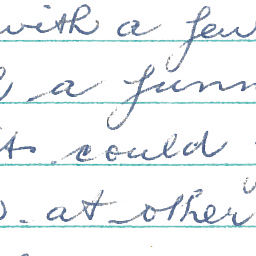 with a few
a funn
could
at other